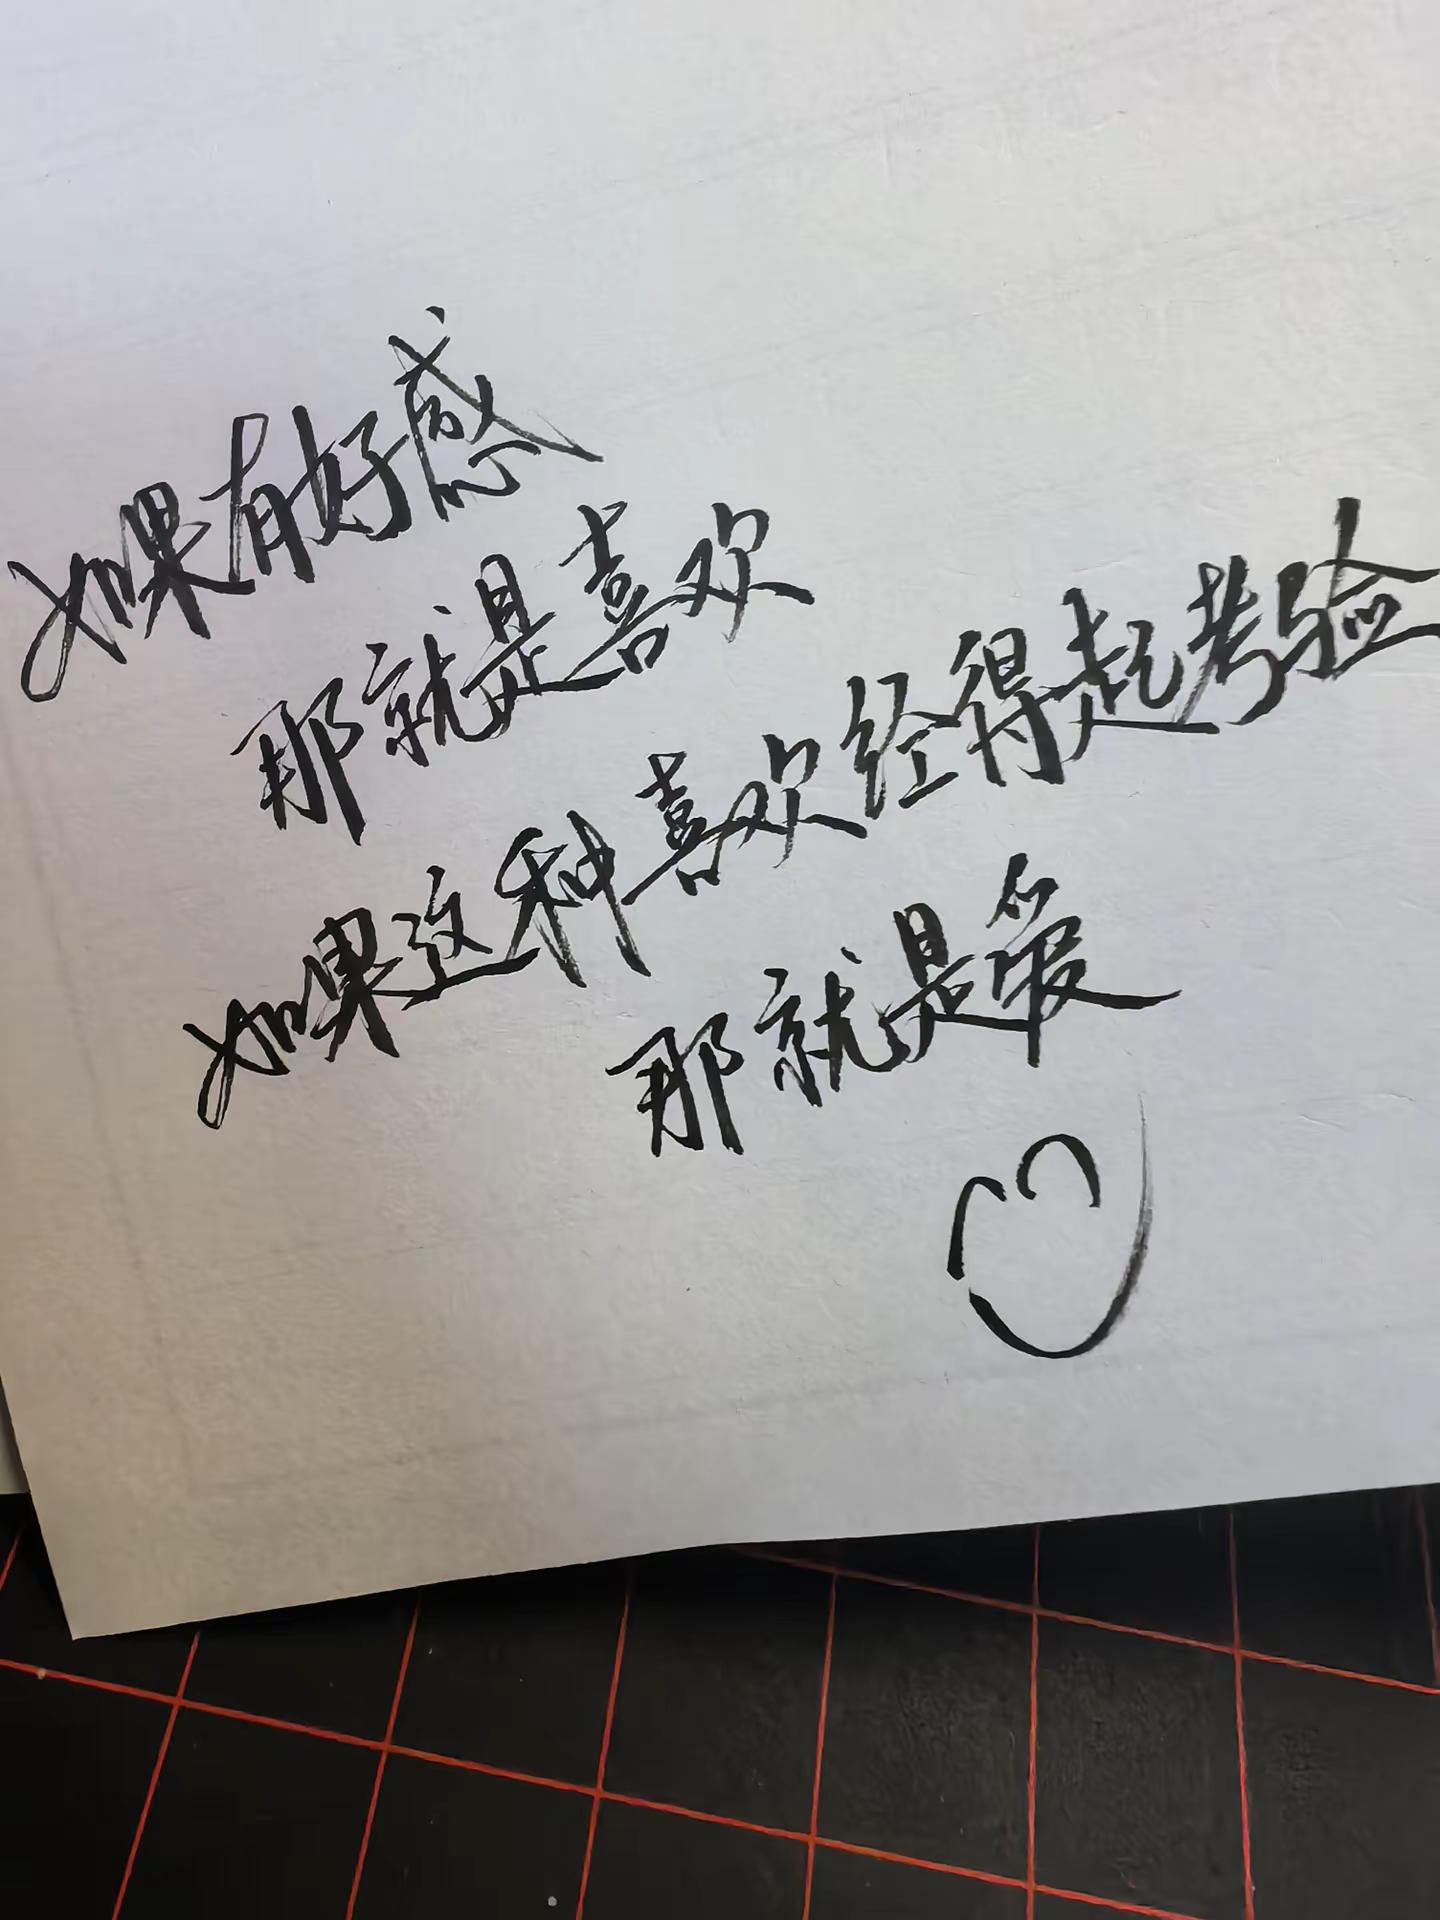 如果有好感
那就是喜欢
如果这种喜欢经得起考验
那就是爱